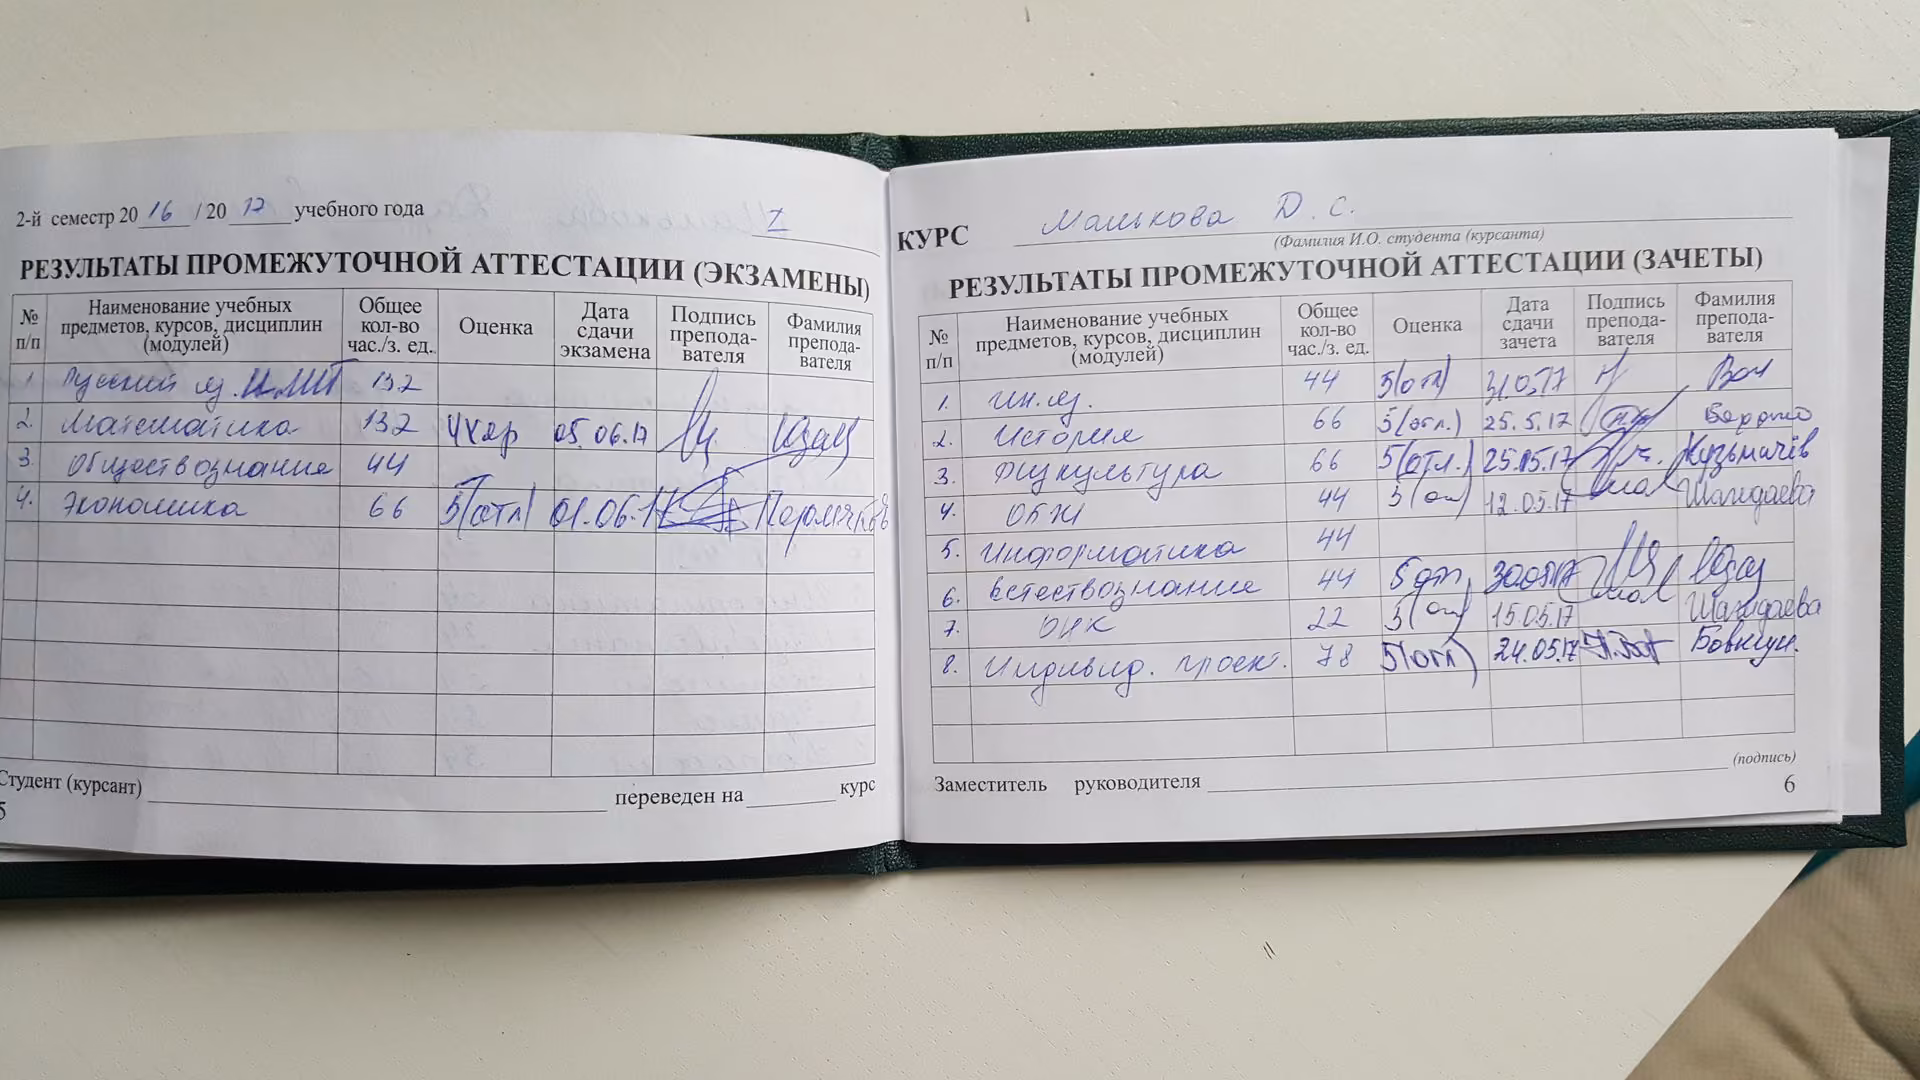 2-й семестр 20 16 / 20 17 учебного года I
РЕЗУЛЬТАТЫ ПРОМЕЖУТОЧНОЙ АТТЕСТАЦИИ (ЭКЗАМЕНЫ)
№ п/п Наименование учебных предметов, курсов, дисциплин (модулей) Общее кол-во час./з. ед. Оценка Дата сдачи экзамена Подпись препода- вателя Фамилия препода- вателя
1 Русский яз. и лит 132
2. Математика 132 4 хор 05.06.17
3. Обществознание 44
4. Экономика 66 5 (отл) 01.06.17
Студент (курсант) переведен на курс
5
КУРС Машкова Д. С.
(Фамилия И.О. студента (курсанта)
РЕЗУЛЬТАТЫ ПРОМЕЖУТОЧНОЙ АТТЕСТАЦИИ (ЗАЧЕТЫ)
№ п/п Наименование учебных предметов, курсов, дисциплин (модулей) Общее кол-во час./з. ед. Оценка Дата сдачи зачета Подпись препода- вателя Фамилия препода- вателя
1. Ин. яз. 44 5 (отл) 31.05.17
2. История 66 5 (отл.) 25.5.17
3. Физкультура 66 5 (отл.) 25.05.17 Кузьмичёв
4. ОБЖ 44 5 (отл) 12.05.17 Шагидаева
5. Информатика 44
6. Естествознание 44 5 отл 30.05.17
7. 22 5 (отл) 15.05.17 Шагидаева
8. Индивид. проект. 78 5 (отл) 24.05.17
(подпись)
Заместитель руководителя
6